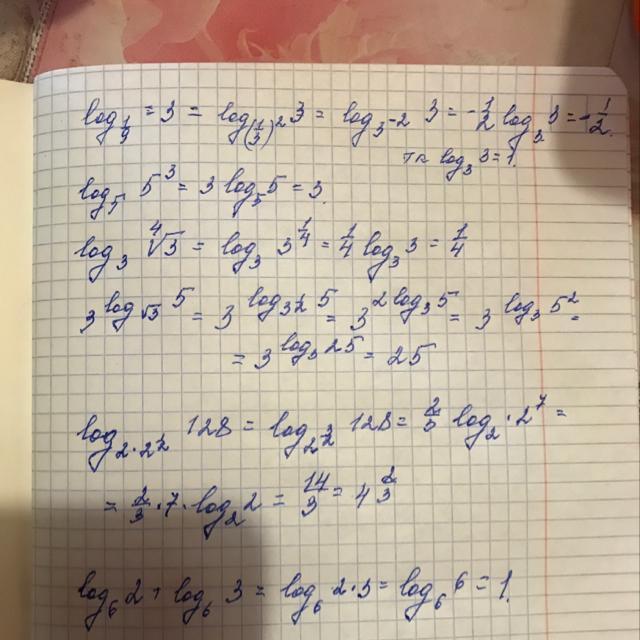 log_{1/9} = 3 = log_{(1/3)^2} 3 = log_{3^{-2}} 3 = -1/2 log_3 3 = -1/2.
тк log_3 3 = 1.
log_5 5^3 = 3 log_5 5 = 3.
log_3 ∜3 = log_3 3^{1/4} = 1/4 log_3 3 = 1/4
3^{log_{√3} 5} = 3^{log_{3^{1/2}} 5} = 3^{2 log_3 5} = 3^{log_3 5^2} =
= 3^{log_3 25} = 25
log_{2·2^{1/2}} 128 = log_{2^{3/2}} 128 = 2/3 log_2 · 2^7 =
= 2/3 · 7 · log_2 2 = 14/3 = 4 2/3
log_6 2 + log_6 3 = log_6 2·3 = log_6 6 = 1.